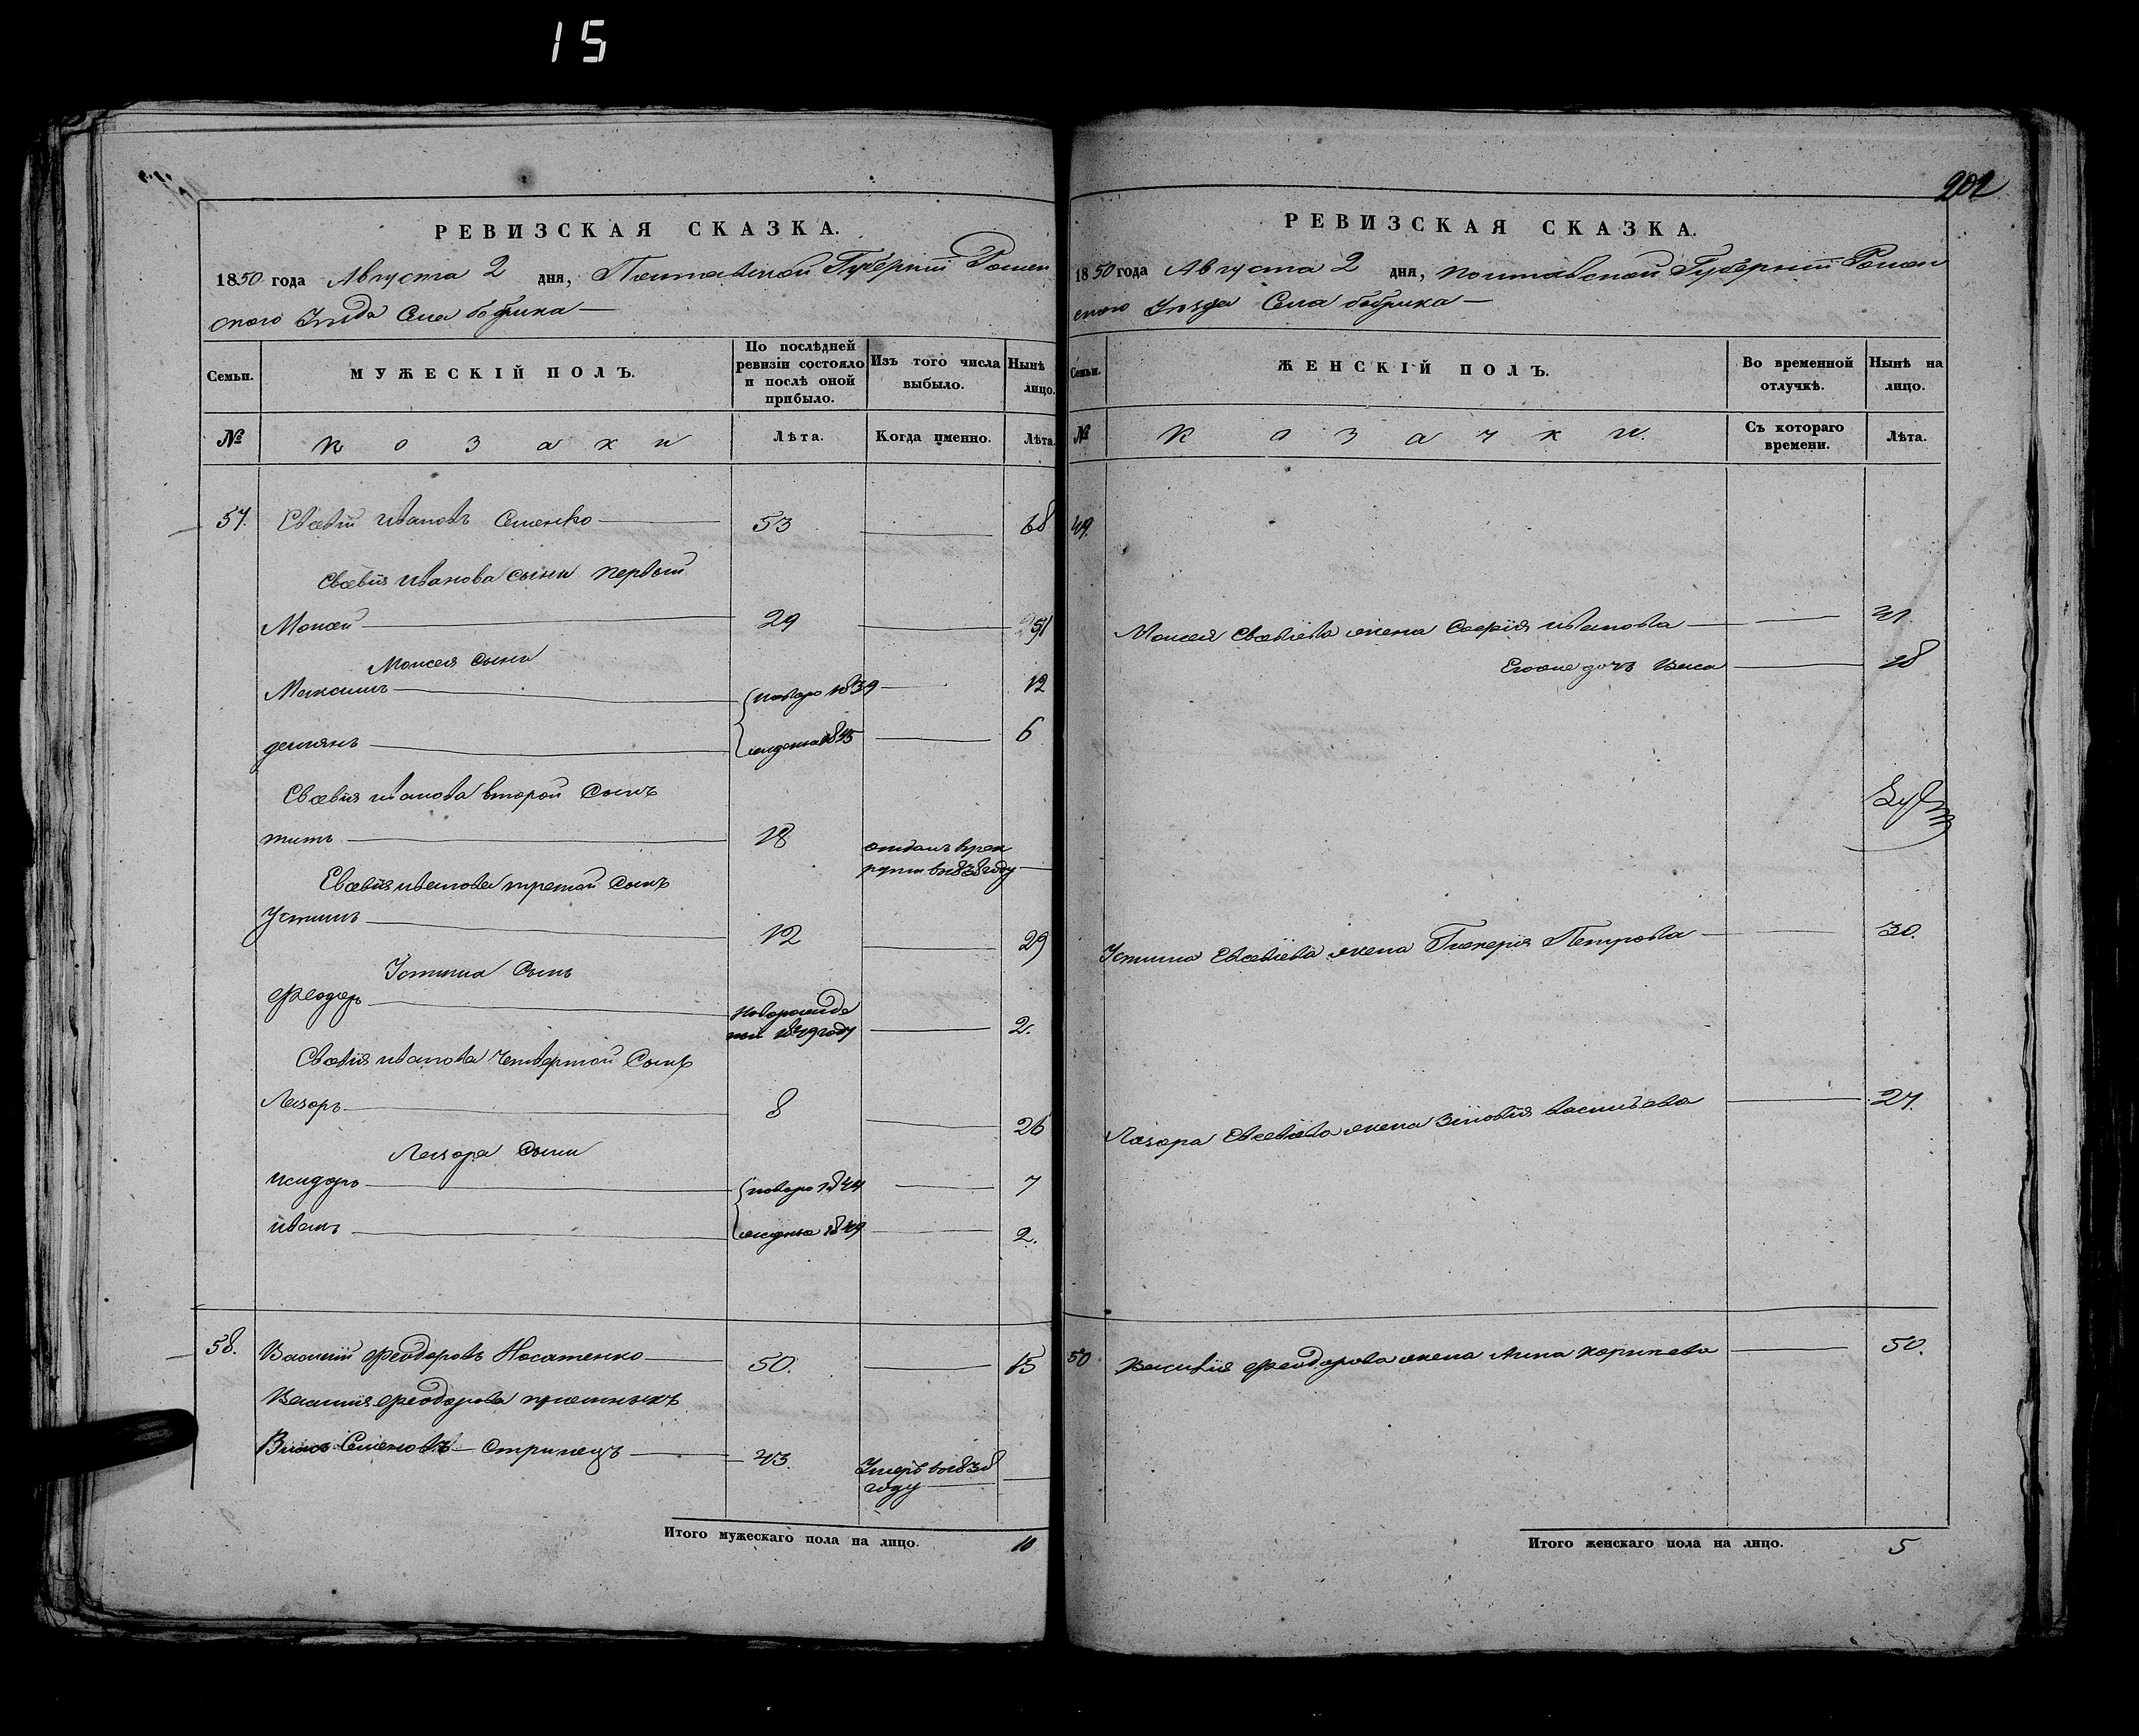 15
РЕВИЗСКАЯ СКАЗКА.
1850 года Августа 2 дня, Полтавской Губернїи Ромен
ского Уѣзда Села бобрика
Семьи.
МУЖЕСКІЙ ПОЛЪ.
По послѣдней ревизіи состояло и послѣ оной прибыло.
Изъ того числа выбыло.
Нынѣ лицо.
№
козаки
Лѣта.
Когда именно.
Лѣта.
57. Евсевїй ивановъ Семенко 53 68
Евсевїя иванова сыни первый
Моисей 29 51
Моисея сыни
Максимъ новоро 1839 12
демянъ жденна 1845 6
Евсевїя иванова второй сынъ
титъ 18 отданъ врек
рути в 1838 году
Евсевїя иванова третой сынъ
Устинъ 12 29
Устина сынъ
Феодоръ Новорожде
ной 1849 году 2.
Евсевїя иванова четвертой сынъ
Лазоръ 8 26
Лазора сыни
исидоръ новоро 1844 7
иванъ жденна 1849 2.
58. Василїй Феодоровъ Носатенко 50. 65
Василия Феодорова приемныхъ
Семеновъ Стринецъ 43. Умеръ в 1838
году
Итого мужескаго пола на лицо. 10
202
РЕВИЗСКАЯ СКАЗКА.
1850 года Августа 2 дня, полтавской Губернїи Ромен
ского Уѣзда Села бобрика
Семьи.
ЖЕНСКІЙ ПОЛЪ.
Во временной отлучкѣ.
Нынѣ на лицо.
№
козачки.
Съ котораго времени.
Лѣта.
49.
Моисея Евсевїева жена Софїя иванова 41.
Егоже дочь Васа 18
Устина Евсевїева жена Гликерїя Петрова 30.
Лазора Евсевїева жена Зїновїя васильева 27.
50 Василїя Феодорова жена Анна корнїева 50.
Итого женскаго пола на лицо. 5